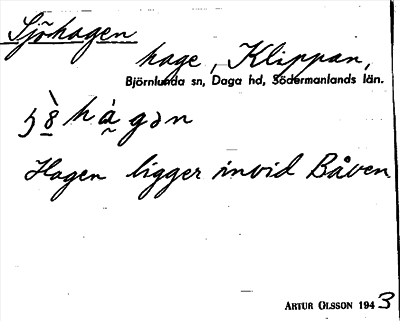 Sjöhagen
hage, Klippan,
Björnlunda sn, Daga hd, Södermanlands län.
Hagen ligger invid Båven
ARTUR OLSSON 1943